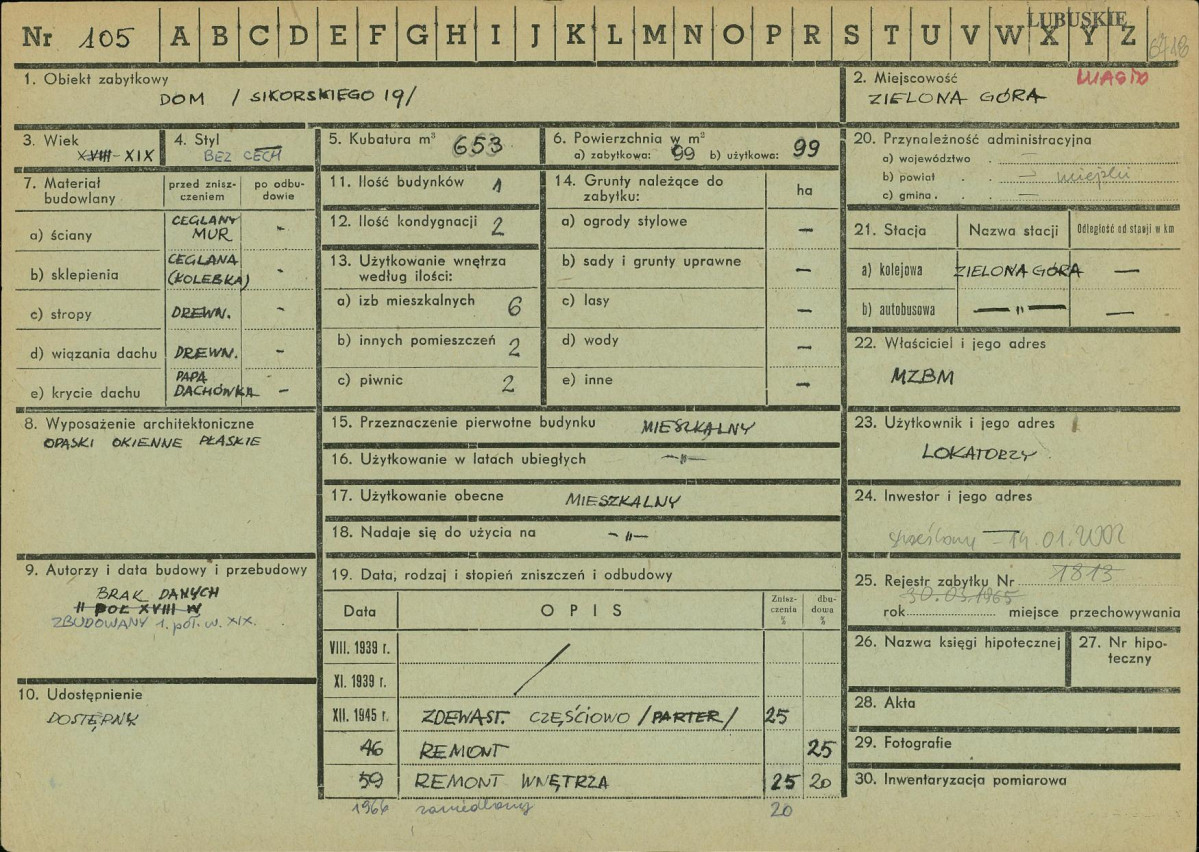 Nr 105 A B C D E F G H I J K L M N O P R S T U V W X Y Z
LUBUSKIE
1. Obiekt zabytkowy
DOM / SIKORSKIEGO 19/
2. Miejscowość MIASTO
ZIELONA GÓRA
3. Wiek
XVIII-XIX
4. Styl
BEZ CECH
5. Kubatura m³ 653
6. Powierzchnia w m²
a) zabytkowa: 99 b) użytkowa: 99
7. Materiał budowlany
przed zniszczeniem
po odbudowie
a) ściany CEGLANY MUR -
b) sklepienia CEGLANA (KOLEBKA) -
c) stropy DREWN. -
d) wiązania dachu DREWN. -
e) krycie dachu PAPA DACHÓWKA -
8. Wyposażenie architektoniczne
OPASKI OKIENNE PŁASKIE
9. Autorzy i data budowy i przebudowy
BRAK DANYCH
II POŁ XVIII W
ZBUDOWANY 1. poł. w. XIX.
10. Udostępnienie
DOSTĘPNY
11. Ilość budynków 1
12. Ilość kondygnacji 2
13. Użytkowanie wnętrza
według ilości:
a) izb mieszkalnych 6
b) innych pomieszczeń 2
c) piwnic 2
14. Grunty należące do
zabytku: ha
a) ogrody stylowe —
b) sady i grunty uprawne —
c) lasy —
d) wody —
e) inne —
15. Przeznaczenie pierwotne budynku MIESZKALNY
16. Użytkowanie w latach ubiegłych —"—
17. Użytkowanie obecne MIESZKALNY
18. Nadaje się do użycia na —"—
19. Data, rodzaj i stopień zniszczeń i odbudowy
Data OPIS Zniszczenia % dbudowa %
VIII. 1939 r.
XI. 1939 r.
XII. 1945 r. ZDEWAST. CZĘŚCIOWO /PARTER/ 25
46 REMONT 25
59 REMONT WNĘTRZA 25 20
1966 zaniedbany 20
20. Przynależność administracyjna
a) województwo
b) powiat — miejski
c) gmina —
21. Stacja Nazwa stacji Odległość od stacji w km
a) kolejowa ZIELONA GÓRA —
b) autobusowa —"— —
22. Właściciel i jego adres
MZBM
23. Użytkownik i jego adres
LOKATORZY
24. Inwestor i jego adres
skreślony — 14.01.2002
25. Rejestr zabytku Nr 1813
30.03.1965
rok miejsce przechowywania
26. Nazwa księgi hipotecznej
27. Nr hipoteczny
28. Akta
29. Fotografie
30. Inwentaryzacja pomiarowa